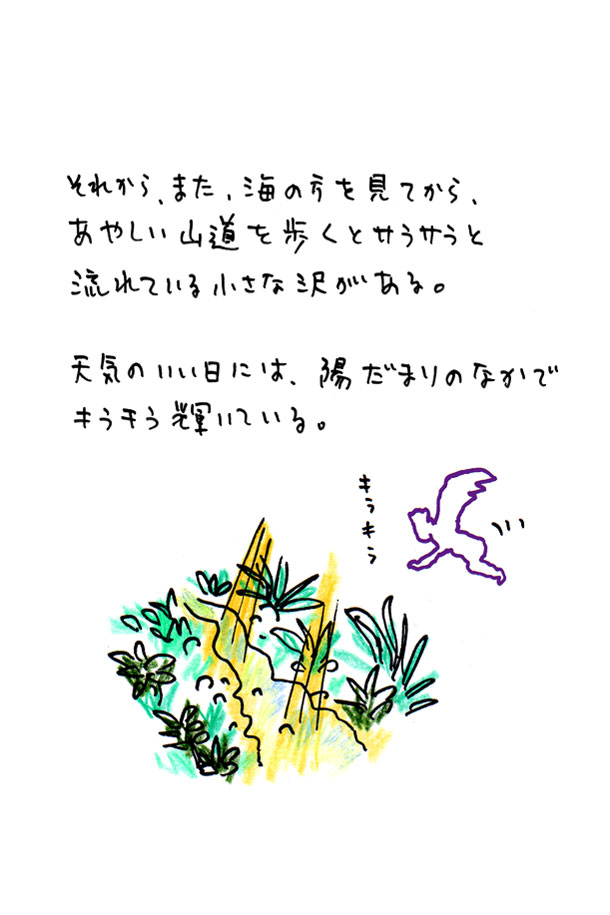 それから、また、海の方を見てから、
あやしい山道を歩くとサラサラと
流れている小さな沢がある。
天気のいい日には、陽だまりのなかで
キラキラ輝いている。
キラキラ